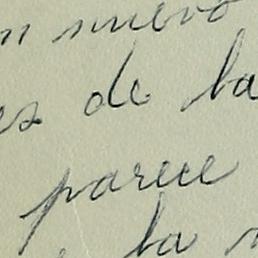 un nuevo
es de la
parece
la